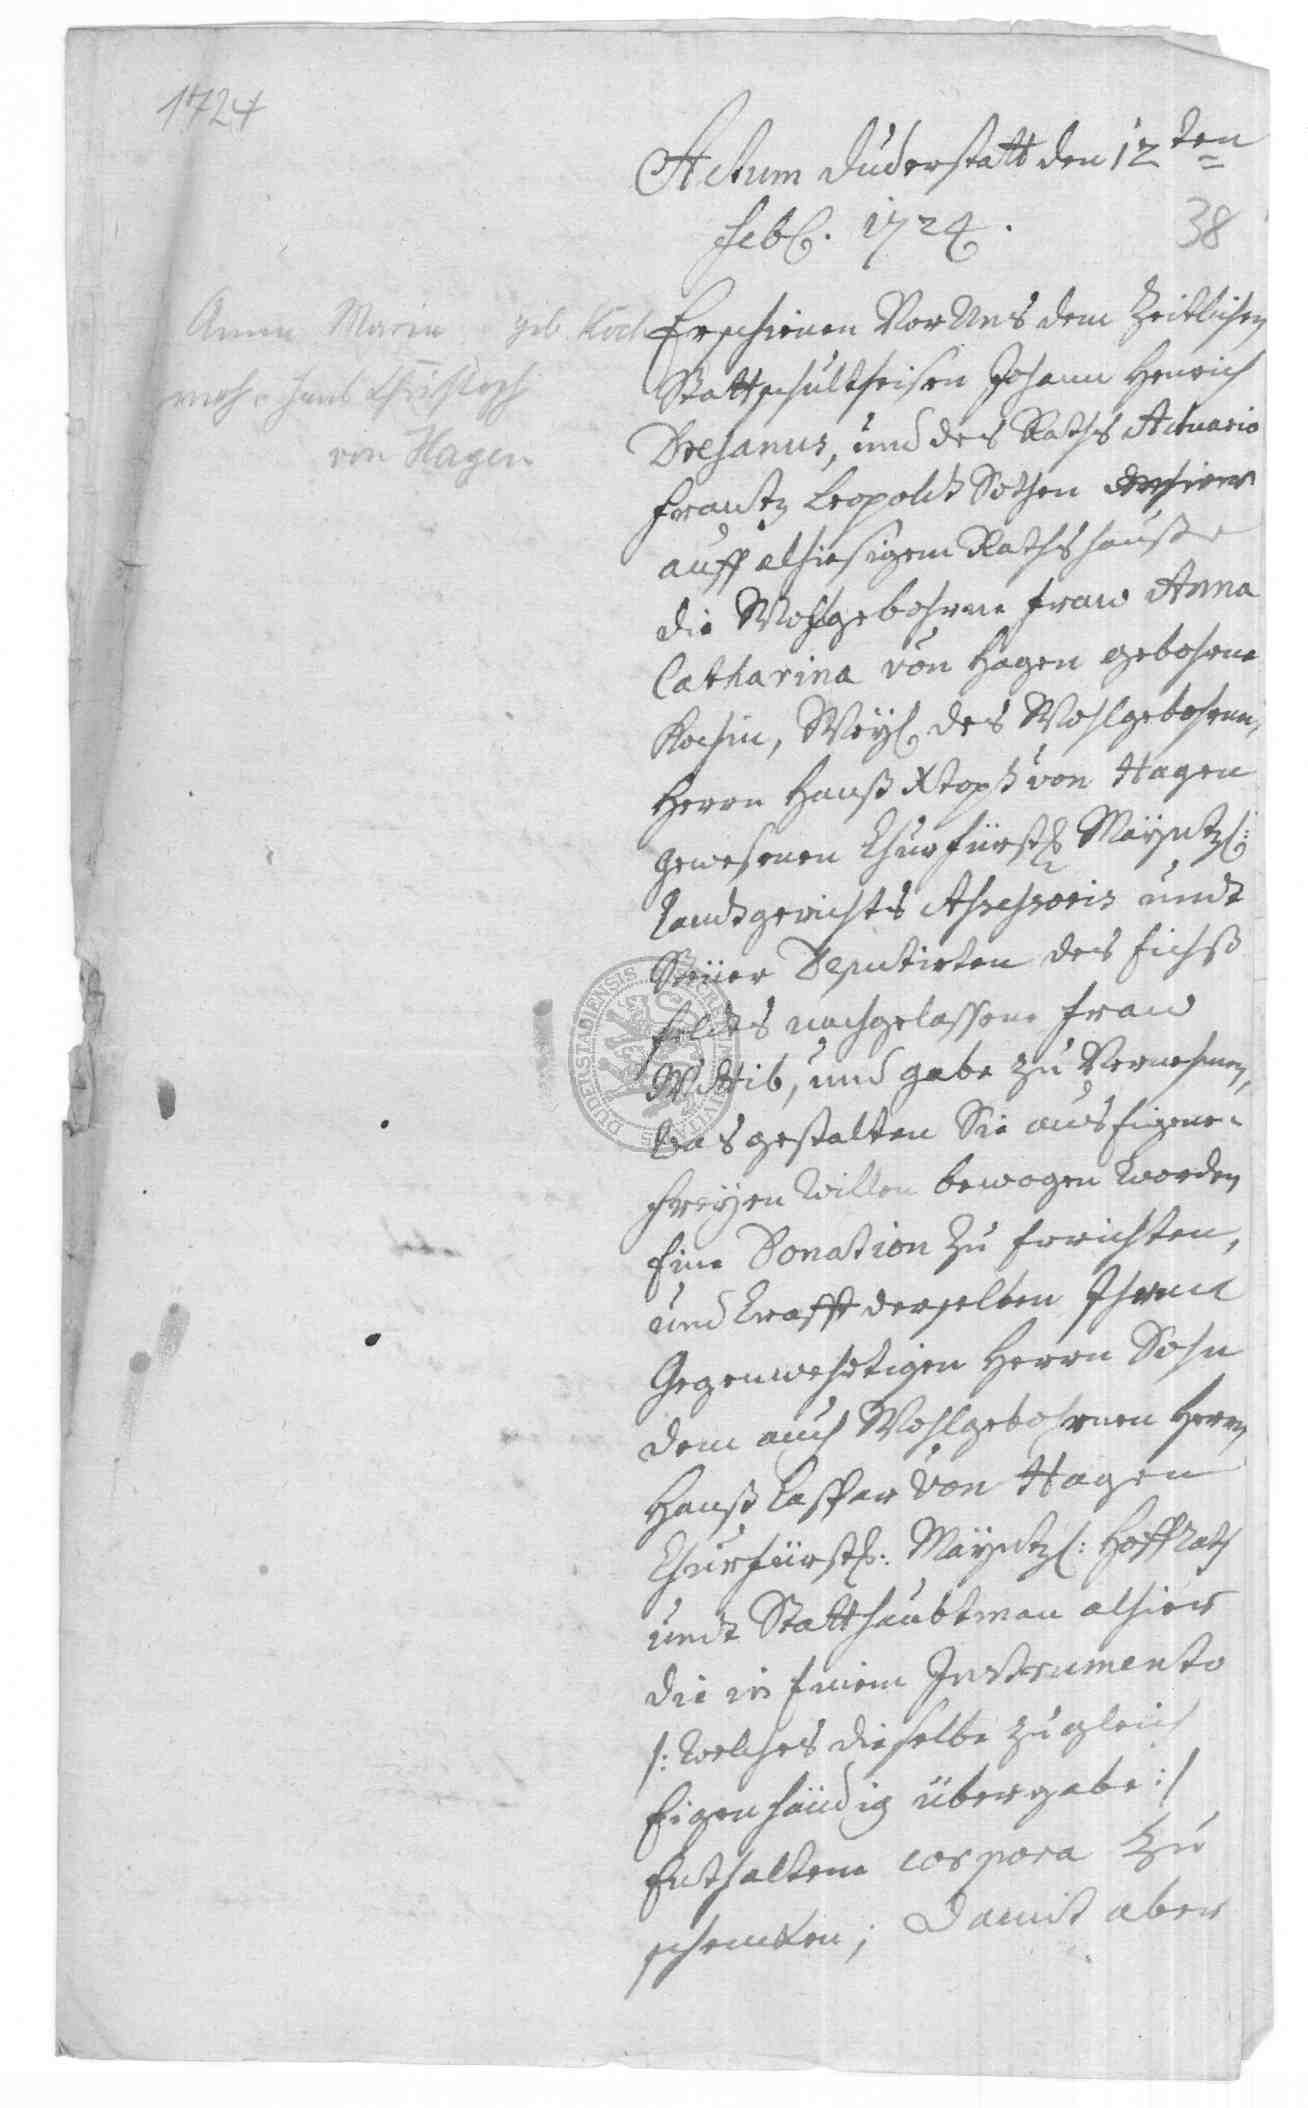 1724
Actum Duderstatt den 12ten
Febr. 1724.
38
Anna Maria geb. Koch
von Hagen
Erschienen Vor Uns dem Zeitlichen
Stattschultheisen Johann Henrich
und des Raths Actuario
Frantz Leopoldt Sothen
auff alhiesigem Rathshauße
die Wohlgebohrne Fraw Anna
Catharina von Hagen gebohrne
Kochin, Weyl. des Wohlgebohrnen
Herrn Hanß Xtoph von Hagen
gewesenen Churfürstl. Mäyntzl:
Landtgerichts Assessoris undt
Steüer Deputirten des Eichß
feldes nachgelassene Fraw
Wittib, und gabe zu Vernehmen,
was gestalten Sie aus Eigene
freÿen willen bewogen worden
Eine Donation zu Errichten,
und Krafft derselben Ihrem
Gegenwehrtigen Herrn Sohn
dem auch Wohlgebohrnen Herrn
Hanß Caspar von Hagen
Churfürstl: Mäyntzl: Hoffrath
undt Statthaubtman alhier
die in Einem Instrumento
/: welches dieselbe zugleich
Eigenhändig übergabe :/
Enthaltene corpora zu
schencken; Damit aber